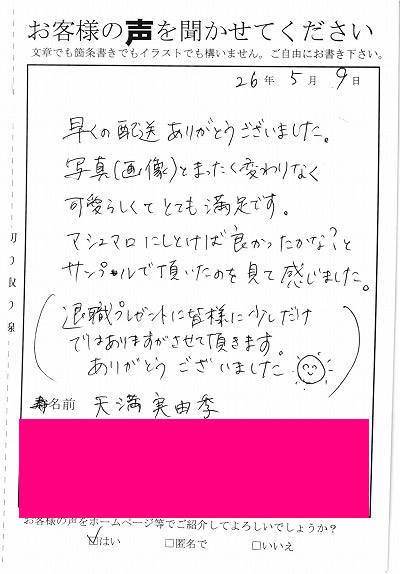 お客様の声を聞かせてください
文章でも箇条書きでもイラストでも構いません。ご自由にお書き下さい。
26年 5月 9日
早くの配送 ありがとうございました。
写真(画像)とまったく変わりなく
可愛らしくて とても 満足です。
マシュマロ にしとけば 良かったかな?と
サンプルで 頂いたのを 見て 感じました。
(退職プレゼントに皆様に少しだけ
ではありますがさせて頂きます。
ありがとう ございました)
お名前 天満 実由季
お客様の声をホームページ等でご紹介してよろしいでしょうか?
☑はい □匿名で □いいえ
切り取り線